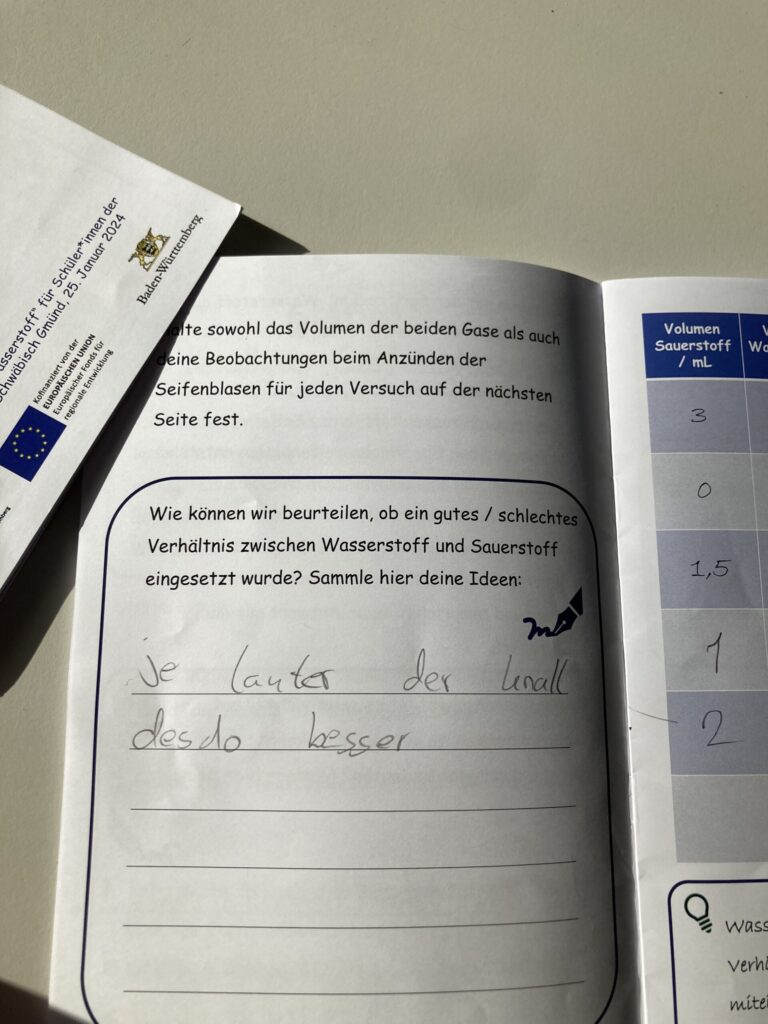 asserstoff" für Schüler*innen der
Schwäbisch Gmünd, 25. Januar 2024
Baden-Württemberg
Kofinanziert von der
EUROPÄISCHEN UNION
Europäischer Fonds für
regionale Entwicklung
alte sowohl das Volumen der beiden Gase als auch
deine Beobachtungen beim Anzünden der
Seifenblasen für jeden Versuch auf der nächsten
Seite fest.
Wie können wir beurteilen, ob ein gutes / schlechtes
Verhältnis zwischen Wasserstoff und Sauerstoff
eingesetzt wurde? Sammle hier deine Ideen:
Je lauter der knall
desdo besser
Volumen
Sauerstoff
/ mL
3
0
1,5
1
2
Wass
Verhä
mitei